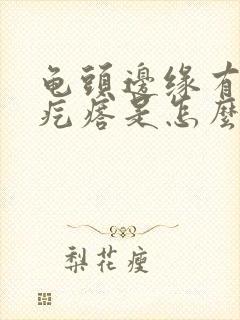 龟頭邊缘有
疙瘩是怎麼
梨花瘦